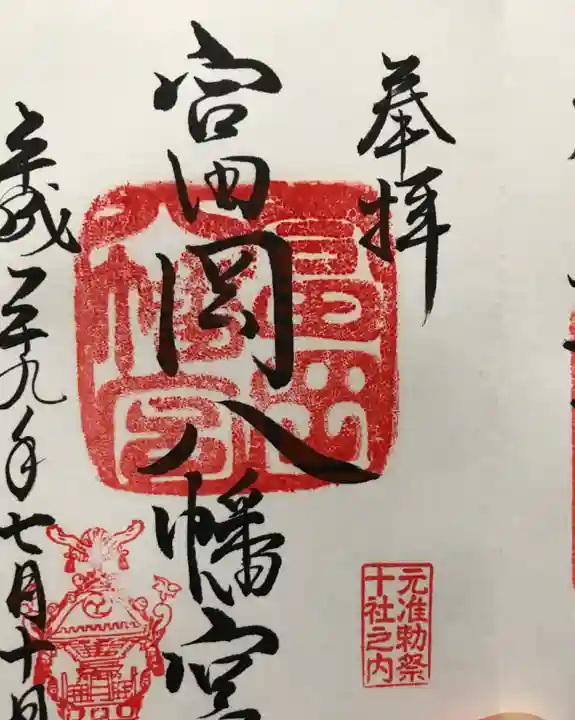 奉拝
富岡八幡宮
平成二十九年七月十日
元准勅祭
十社之内
富岡
八幡宮